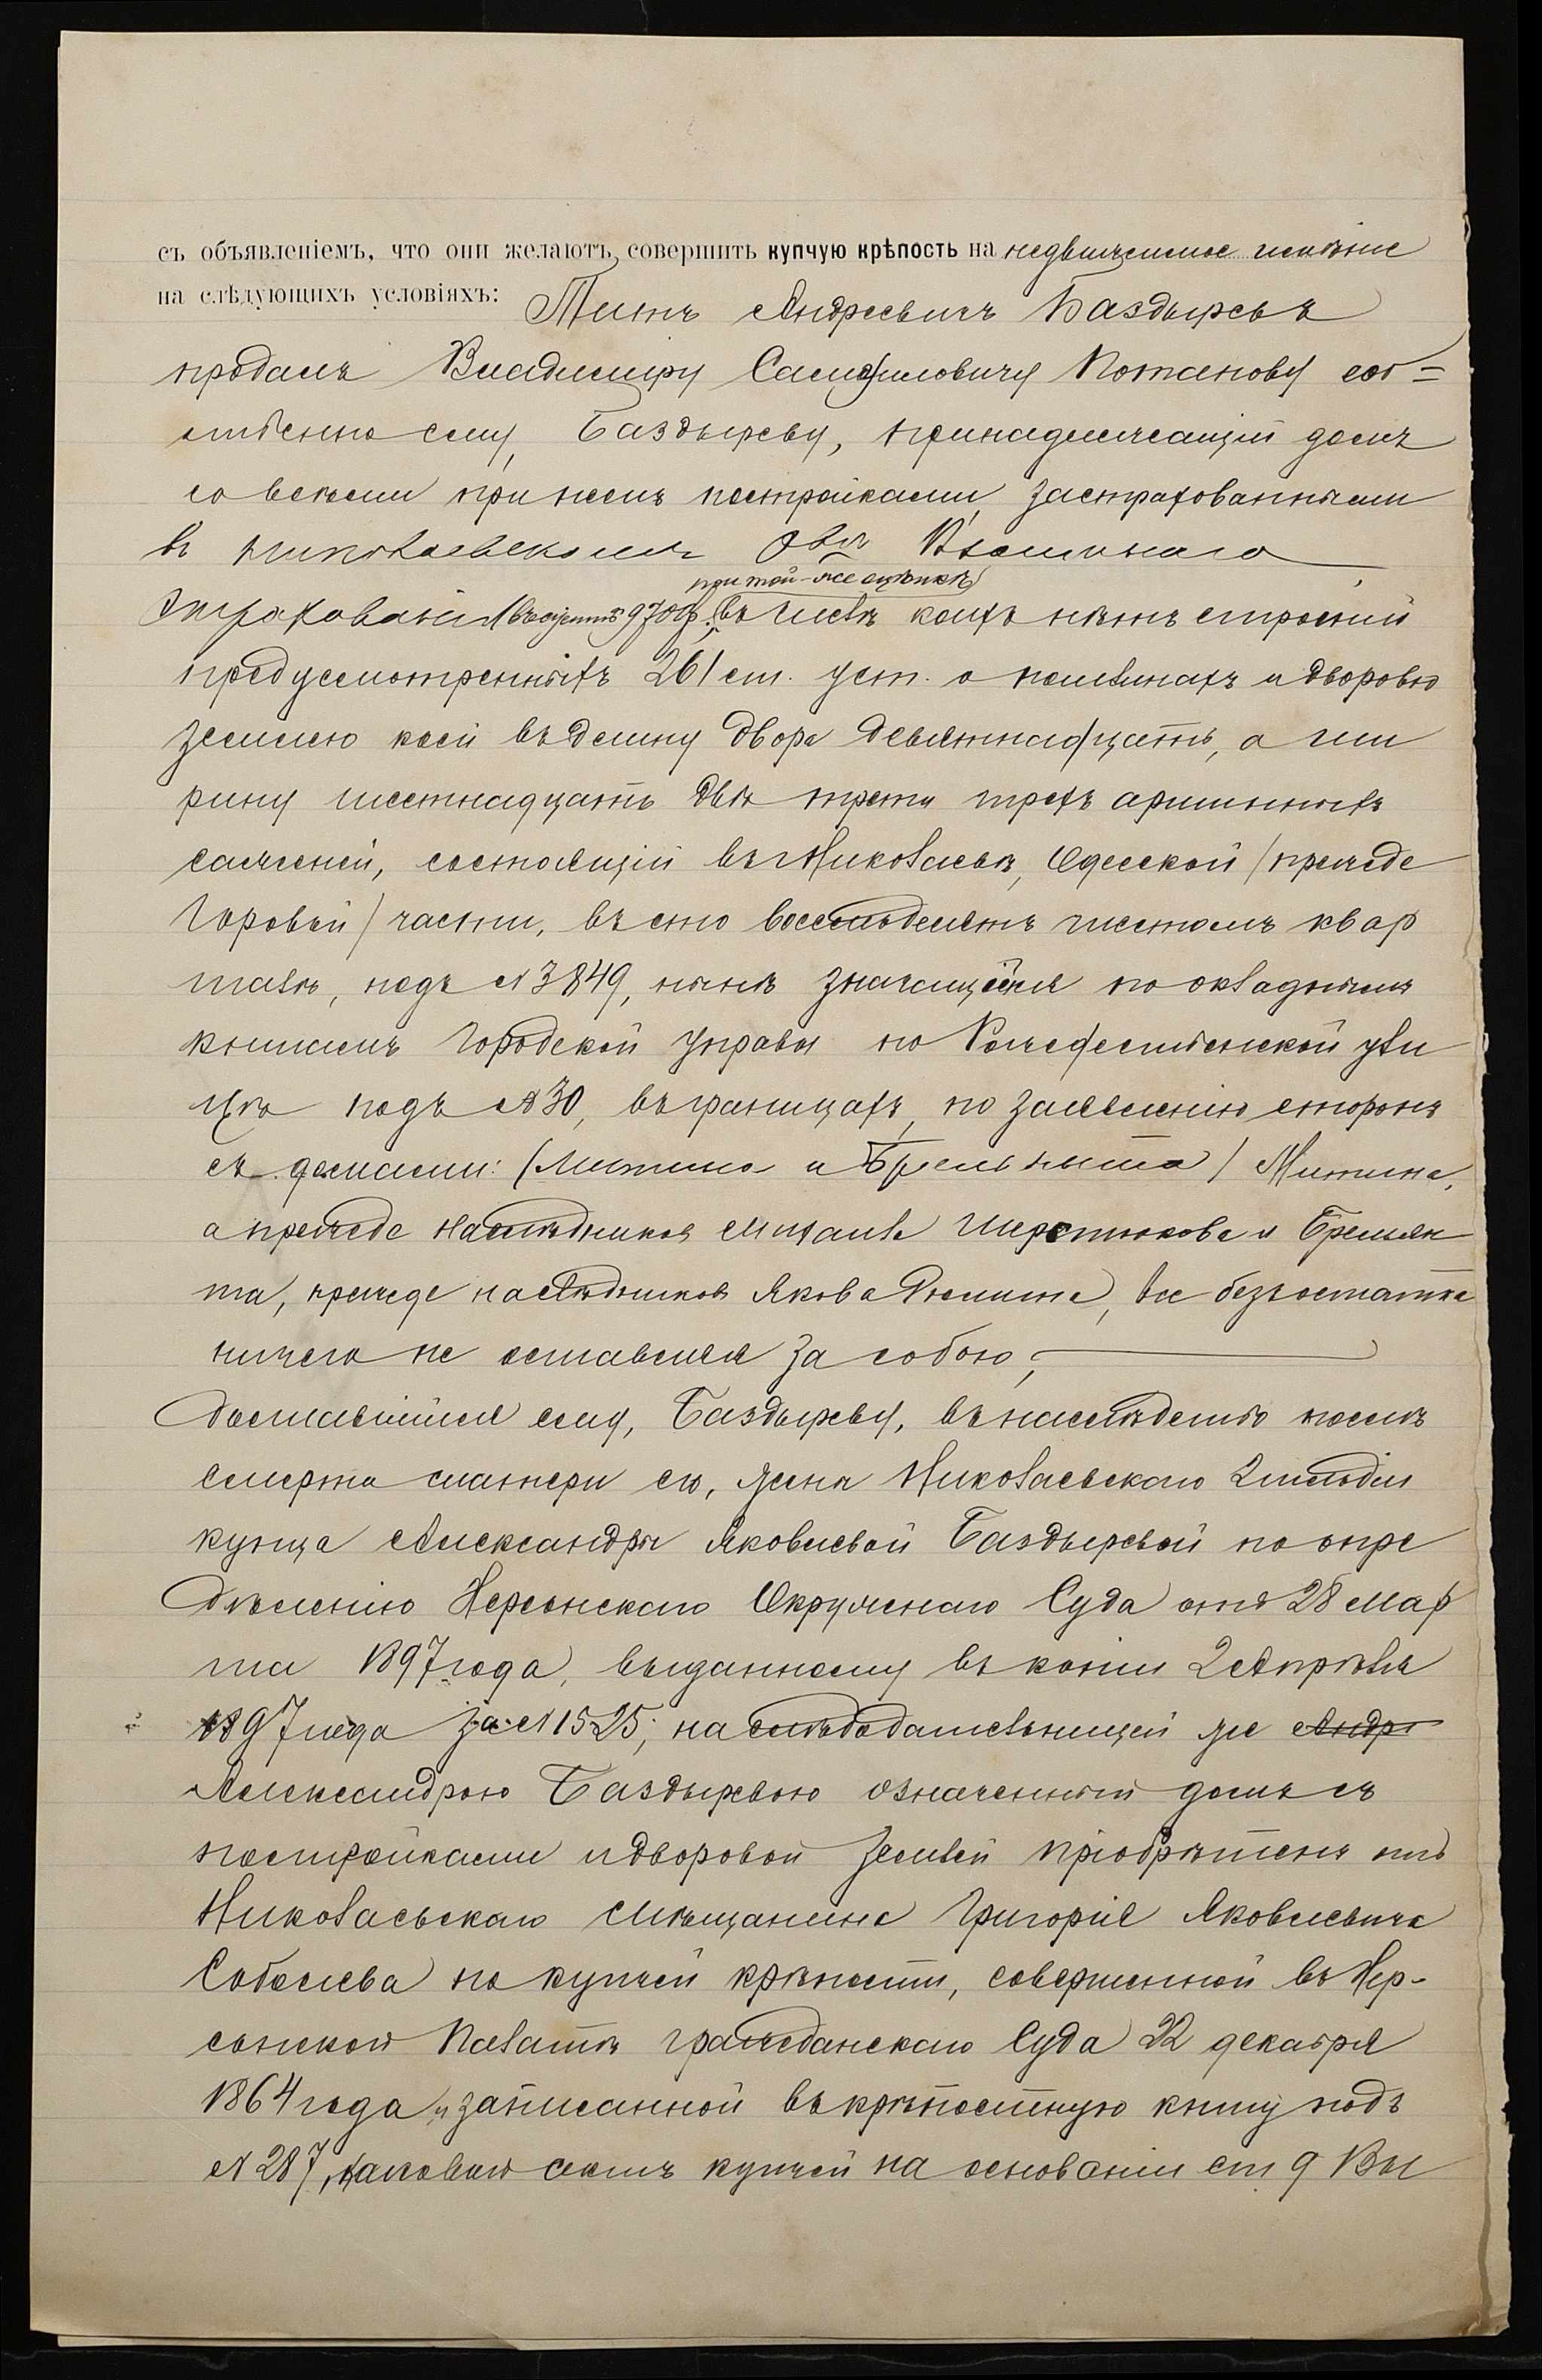 съ объявленіемъ, что они желаютъ совершить купчую крѣпость на недвижимое имѣніе
на слѣдующихъ условіяхъ: Титъ Андреевичъ Баздыревъ
продалъ Владиміру Самойловичу Потапову соб=
ственно ему, Баздыреву, принадлежащій домъ
со всѣми при немъ постройками, застрахованными
въ Николаевскомъ Об-вѣ Взаимнаго
при той-же оцѣнкѣ
Страхованія (въ суммѣ 9700 р. въ числѣ коихъ нѣтъ строеній
предусмотренныхъ 261 ст. уст. о пошлинахъ и дворовою
землею коей въ длину двора девятнадцать, а ши
рину шестнадцать двѣ трети трехъ аршинныхъ
саженей, состоящій въ г. Николаевѣ, Одесской (прежде
Торовой) части, въ сто восемьдесятъ шестомъ квар
талѣ, подъ № 3849, нынѣ значащійся по окладнымъ
книгамъ Городской Управы по Рождественской ули
цѣ подъ № 30, въ границахъ, по заявленію сторонъ
съ домами: (Митина и ) Митина,
а прежде наслѣдниковъ Михаила Шерстюкова и
та, прежде наслѣдниковъ Якова , все безъ остатка
ничего не оставляя за собою,
Доставшійся ему, Баздыреву, въ наслѣдство послѣ
смерти матери его, жены Николаевскаго 2 гильдіи
купца Александры Яковлевой Баздыревой по опре
дѣленію Херсонскаго Окружнаго Суда отъ 28 мар
та 1897 года, выданному въ копіи 2 Апрѣля
1897 года за № 1525; наслѣдодательницей же Андр
Александрою Баздыревою означенный домъ съ
постройками и дворовой землей пріобрѣтенъ отъ
Николаевскаго мѣщанина Григорія Яковлевича
Соболева по купчей крѣпости, совершенной въ Хер-
сонской Палатѣ гражданскаго Суда 22 декабря
1864 года и записанной въ крѣпостную книгу подъ
№ 287, каковой актъ купчей на основаніи ст 9 Вы